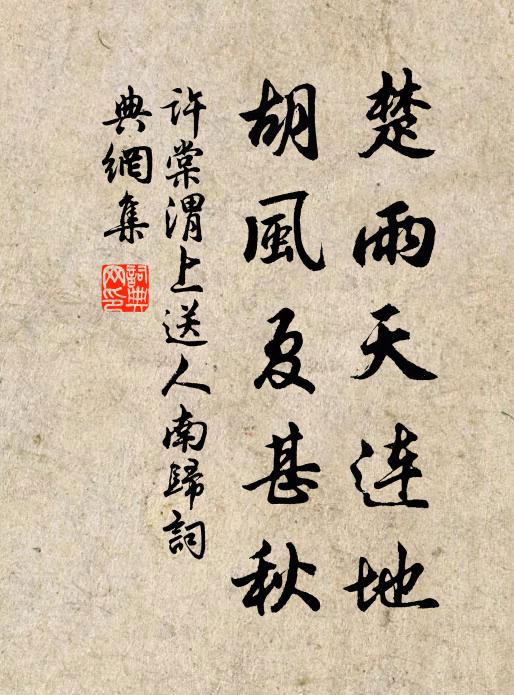 楚雨天連地
胡風夏甚秋
許棠渭上送人南歸詞
典網集
詞典網印